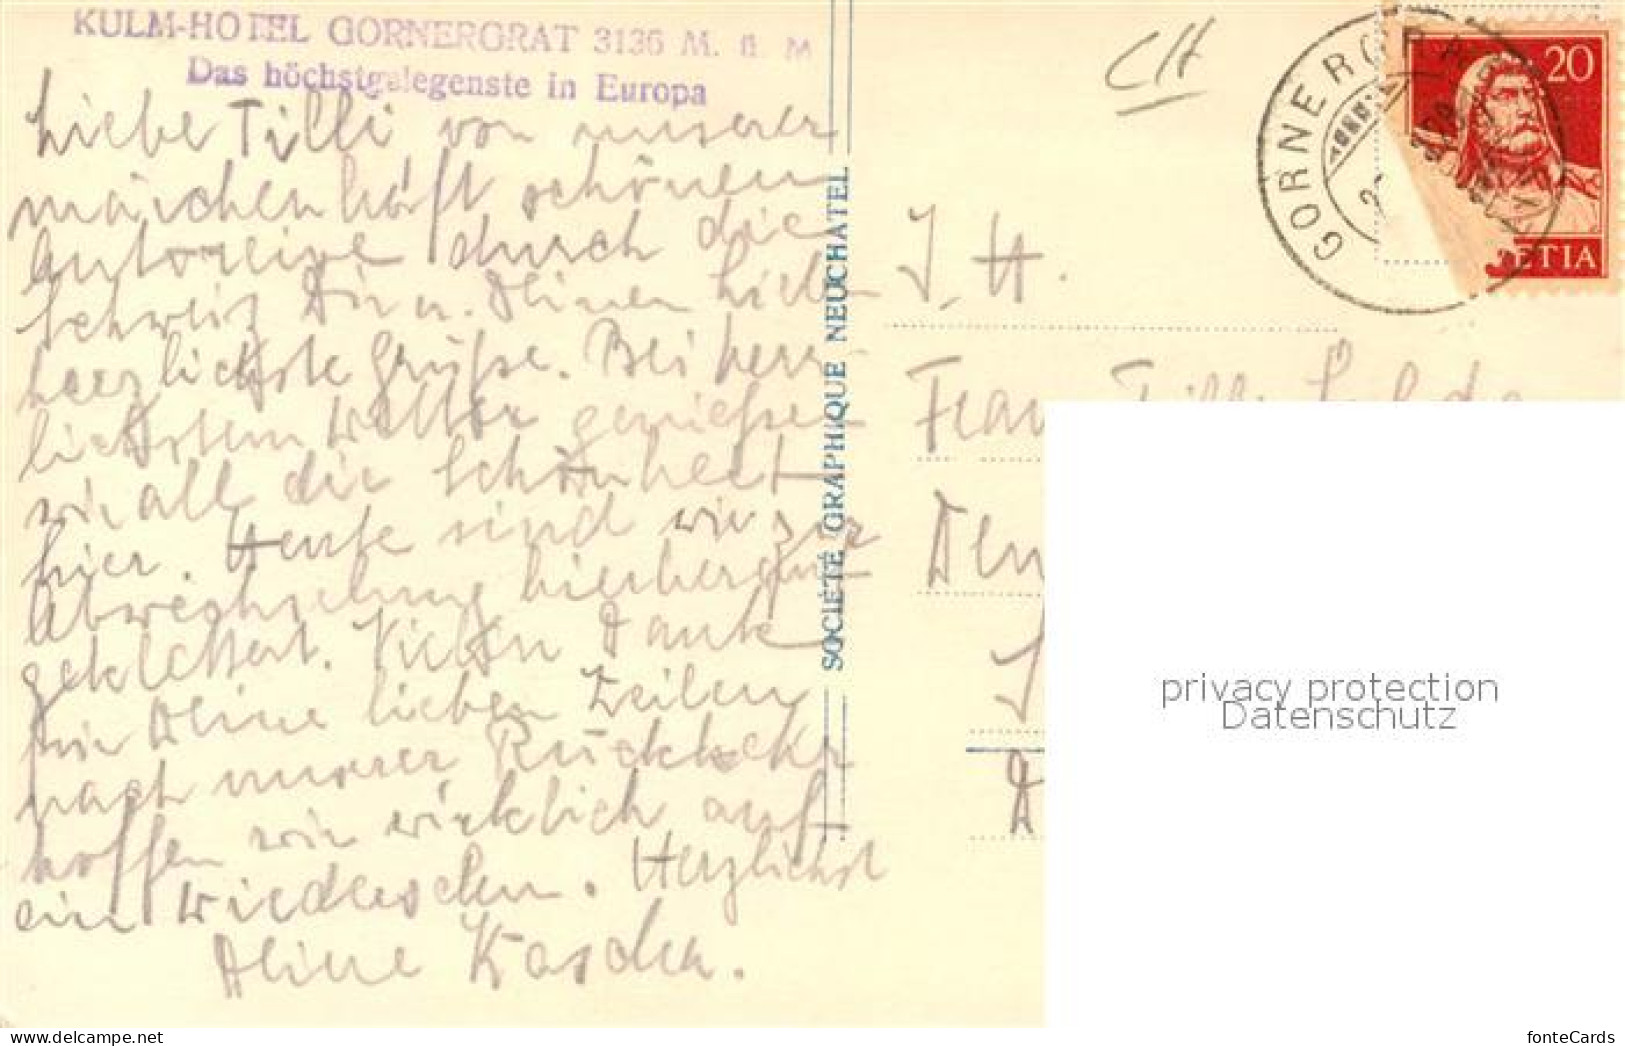 KULM-HOTEL GORNERGRAT 3136 M. ü. M
Das höchstgelegenste in Europa
Liebe Tilli von unserer
märchenhaft schönen
Autoreise durch die
Schweiz Dir u. Deinen Lieb-
herzlichste Grüße. Bei herr-
lichstem Wetter genießen
wir all die Schönheit
hier. Heute sind wir zur
Abwechslung hierherauf-
geklettert. Vielen Dank
für Deine lieben Zeilen
nach unserer Rückkehr
hoffen wir wirklich auf
ein Wiedersehen. Herzlichst
Deine
SOCIÉTÉ GRAPHIQUE NEUCHATEL
CH
GORNERGRAT
20
ETIA
I. H.
Frau Tilli
privacy protection
Datenschutz
www.delcampe.net
fonteCards